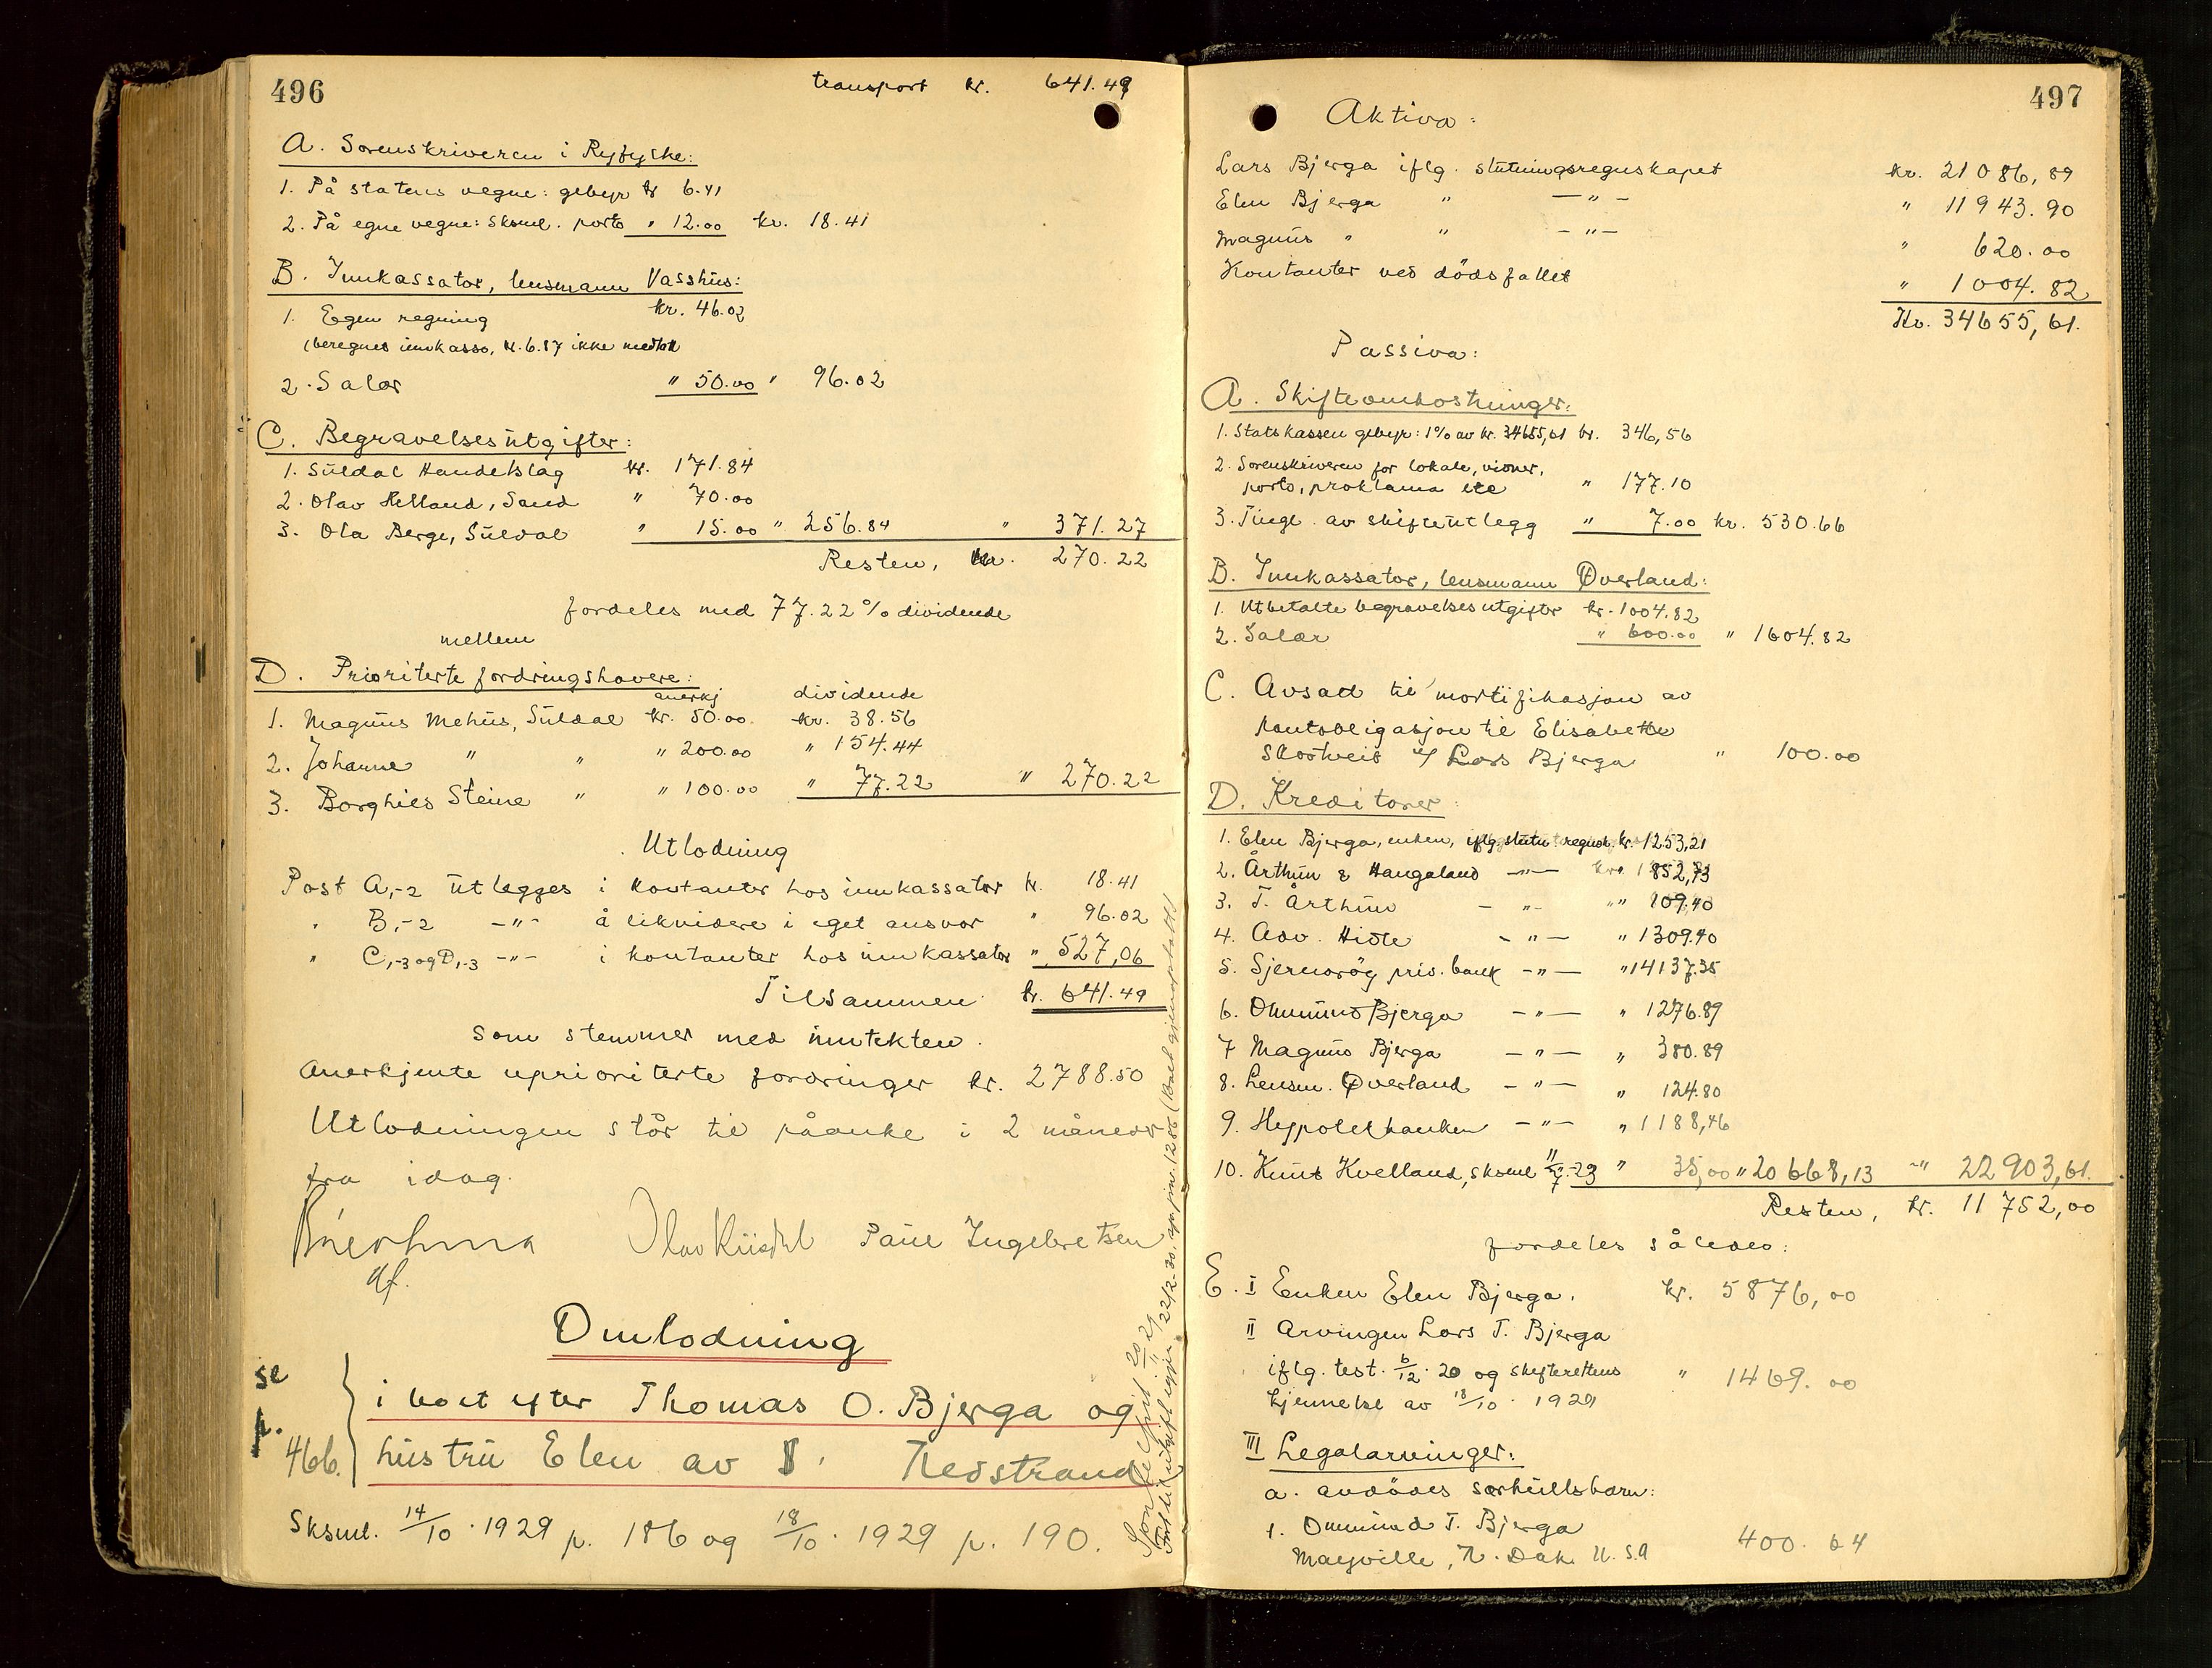 496
transport kr. 641.49
A. Sorenskriveren i Ryfylke:
1. På statens vegne: gebyr kr 6.41
2. På egne vegne: Sksml. porto " 12.00 kr. 18.41
B. Innkassator, lensmann Vasshus:
1. Egen regning kr. 46.02
(beregnes innkasso, kr. 6.87 ikke medtatt
2. Salær " 50.00 " 96.02
C. Begravelsesutgifter:
1. Suldal Handelslag kr. 171.84
2. Olav Helland, Sand " 70.00
3. Ola Berge, Suldal " 15.00 " 256.84 " 371.27
Resten, kr. 270.22
fordeles med 77.22 % dividende
mellem
D. Prioriterte fordringshavere:
anerkj dividende
1. Magnus Mehus, Suldal kr. 50.00. kr. 38.56
2. Johanne " " " 200.00 " 154.44
3. Borghild Steine " " 100.00 " 77.22 " 270.22
Utlodning
Post A,-2 utlegges i kontanter hos innkassator kr. 18.41
" B,-2 -"- å likvidere i eget ansvar " 96.02
" C,-3 og D,-3 -"- i kontanter hos innkassator " 527,06
Tilsammen kr. 641.49
som stemmer med inntekten.
Anerkjente uprioriterte fordringer kr. 2788.50
Utlodningen står til påanke i 2 måneder
fra idag.
Olav Riisdal Paul Ingebretsen
Omlodning
se
p.
466.
i boet efter Thomas O. Bjerga og
hustru Elen av S. Nedstrand
Sksml. 14/10. 1929 p. 186 og 18/10. 1929 p. 190.
497
Aktiva:
Lars Bjerga iflg. slutningsregnskapet kr. 21086,89
Elen Bjerga " -"- " 11943.90
Magnus " " -"- " 620.00
Kontanter ved dödsfallet " 1004.82
Kr. 34655,61.
Passiva:
A. Skifteomkostninger:
1. Statskassen gebyr: 1% av kr. 34655,61 kr. 346,56
2. Sorenskriveren for lokale, vidner,
porto, proklama etc " 177.10
3. Tingl. av skifteutlegg " 7.00 kr. 530.66
B. Innkassator, lensmann Øverland:
1. Utbetalte begravelsesutgifter kr. 1004.82
2. Salær " 600.00 " 1604.82
C. Avsatt til mortifikasjon av
pantobligasjon til Elisabeth
Slotveit u/ Lars Bjerga " 100.00
D. Kreditorer:
1. Elen Bjerga, enken, iflg. slutn. regnsk. kr. 1253,21
2. Årthun & Haugaland -"- kr. 1852,73
3. T. Årthun - "- "" 109,40
4. Adv. Hidle - "- " 1309.40
5. Sjernarøy priv. bank -"- " 14137.35
6. Ommund Bjerga -"- " 1276.89
7 Magnus Bjerga -"- " 380.89
8. Lensm. Øverland -"- " 124.80
9. Hypotekbanken -"- " 1188,46
10. Knut Kvelland, sksml 11/7-29 " 35,00 " 20668,13 -" 22903,61.
Resten, kr. 11752,00
fordeles således:
E. I Enken Elen Bjerga. kr. 5876,00
II Arvingen Lars T. Bjerga
iflg. test. 6/12. 20 og skifterettens " 1469.00
kjennelse av 18/10. 1929
III Legalarvinger:
a. avdödes særkullsbarn:
1. Ommund T. Bjerga
Mayville, N. Dak. U.S.A 400.64